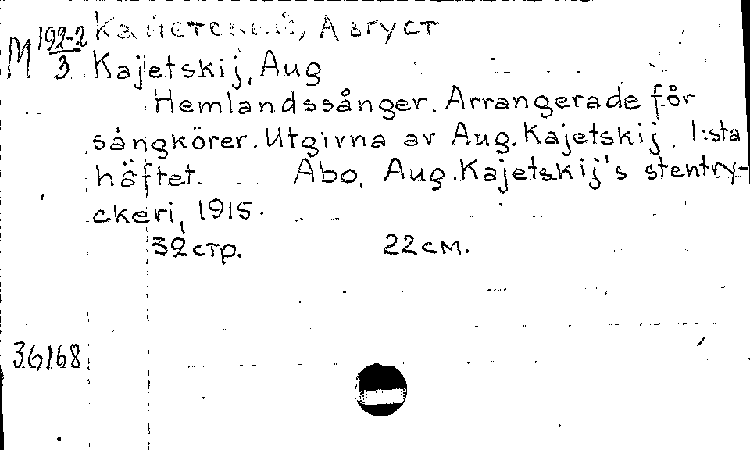 Кайетский, Август
М 192-2/3
Kajetskij, Aug
Hemlandssånger. Arrangerade för
sångkörer. Utgivna av Aug. Kajetskij. 1:sta
häftet. Åbo, Aug. Kajetskij's stentry-
ckeri, 1915.
32 стр. 22 см.
36168